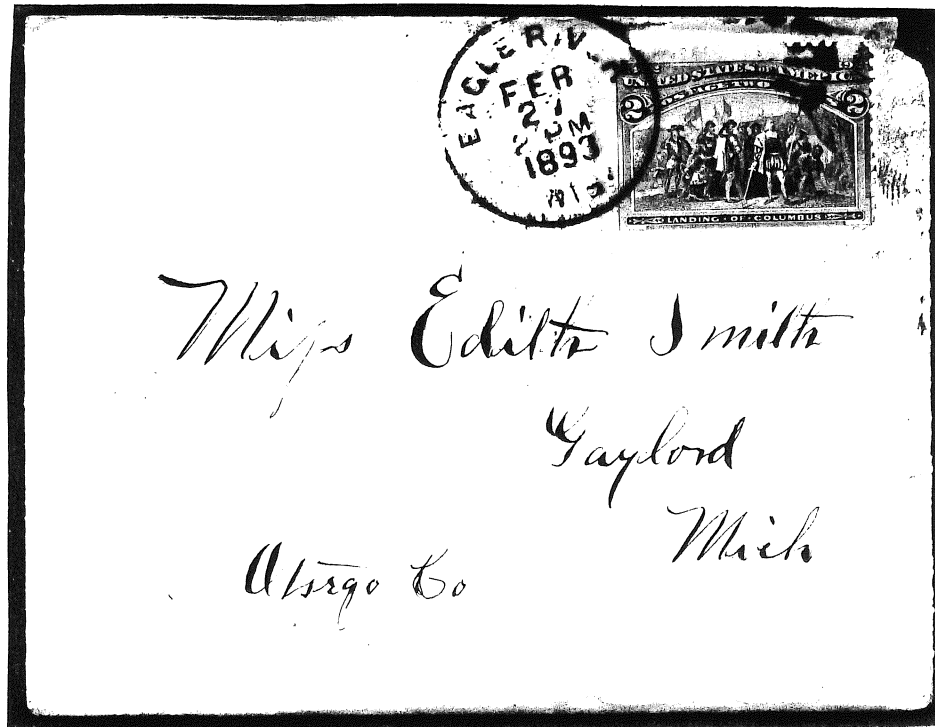 EAGLE RIVER
FEB
27
2 PM
1893
WIS.
UNITED STATES OF AMERICA
POSTAGE TWO CENTS
2 2
LANDING · OF · COLUMBUS
Miss Edith Smith
Gaylord
Mich
Otsego Co